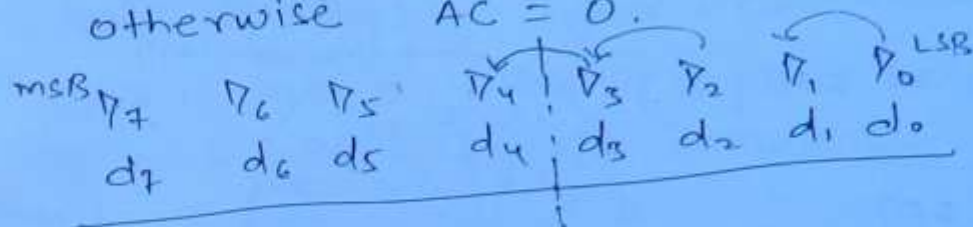 otherwise AC = 0.
MSB D7 D6 D5 D4 D3 D2 D1 D0 LSB
d7 d6 d5 d4 d3 d2 d1 d0